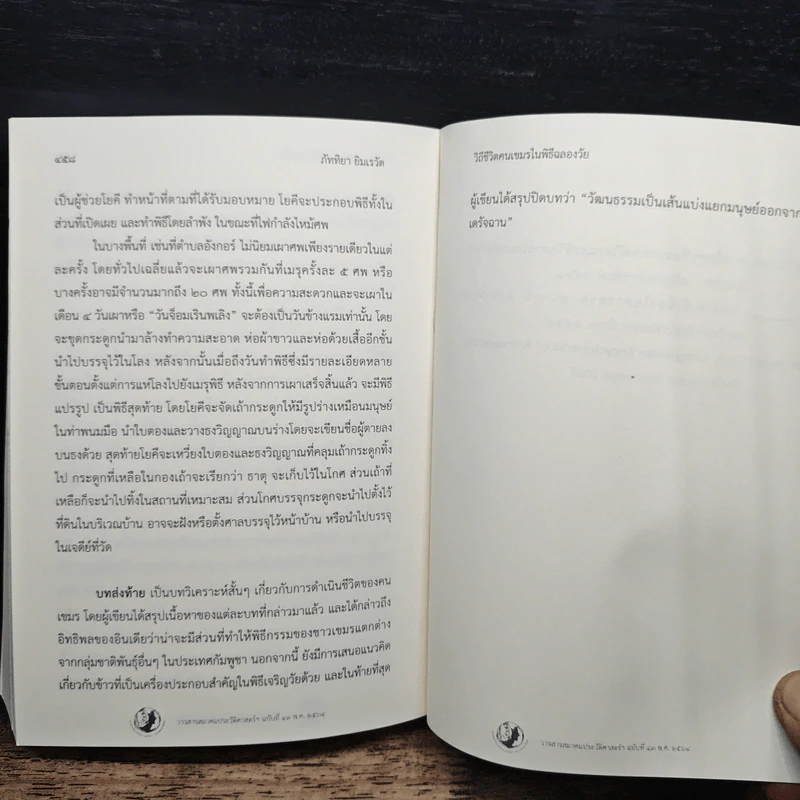 ๔๕๘
ภัททิยา ยิมเรวัต
เป็นผู้ช่วยโยคี ทำหน้าที่ตามที่ได้รับมอบหมาย โยคีจะประกอบพิธีทั้งใน
ส่วนที่เปิดเผย และทำพิธีโดยลำพัง ในขณะที่ไฟกำลังไหม้ศพ
ในบางพื้นที่ เช่นที่ตำบลอังกอร์ ไม่นิยมเผาศพเพียงรายเดียวในแต่
ละครั้ง โดยทั่วไปเฉลี่ยแล้วจะเผาศพรวมกันที่เมรุครั้งละ ๕ ศพ หรือ
บางครั้งอาจมีจำนวนมากถึง ๒๐ ศพ ทั้งนี้เพื่อความสะดวกและจะเผาใน
เดือน ๔ วันเผาหรือ “วันจ็อมเรินพเลิง” จะต้องเป็นวันข้างแรมเท่านั้น โดย
จะขุดกระดูกนำมาล้างทำความสะอาด ห่อผ้าขาวและห่อด้วยเสื่ออีกชั้น
นำไปบรรจุไว้ในโลง หลังจากนั้นเมื่อถึงวันทำพิธีซึ่งมีรายละเอียดหลาย
ขั้นตอนตั้งแต่การแห่โลงไปยังเมรุพิธี หลังจากการเผาเสร็จสิ้นแล้ว จะมีพิธี
แปรรูป เป็นพิธีสุดท้าย โดยโยคีจะจัดเถ้ากระดูกให้มีรูปร่างเหมือนมนุษย์
ในท่าพนมมือ นำใบตองและวางธงวิญญาณบนร่างโดยจะเขียนชื่อผู้ตายลง
บนธงด้วย สุดท้ายโยคีจะเหวี่ยงใบตองและธงวิญญาณที่คลุมเถ้ากระดูกทิ้ง
ไป กระดูกที่เหลือในกองเถ้าจะเรียกว่า ธาตุ จะเก็บไว้ในโกศ ส่วนเถ้าที่
เหลือก็จะนำไปทิ้งในสถานที่เหมาะสม ส่วนโกศบรรจุกระดูกจะนำไปตั้งไว้
ที่ดินในบริเวณบ้าน อาจจะฝังหรือตั้งศาลบรรจุไว้หน้าบ้าน หรือนำไปบรรจุ
ในเจดีย์ที่วัด
บทส่งท้าย เป็นบทวิเคราะห์สั้นๆ เกี่ยวกับการดำเนินชีวิตของคน
เขมร โดยผู้เขียนได้สรุปเนื้อหาของแต่ละบทที่กล่าวมาแล้ว และได้กล่าวถึง
อิทธิพลของอินเดียว่าน่าจะมีส่วนที่ทำให้พิธีกรรมของชาวเขมรแตกต่าง
จากกลุ่มชาติพันธุ์อื่นๆ ในประเทศกัมพูชา นอกจากนี้ ยังมีการเสนอแนวคิด
เกี่ยวกับข้าวที่เป็นเครื่องประกอบสำคัญในพิธีเจริญวัยด้วย และในท้ายที่สุด
วารสารสมาคมประวัติศาสตร์ฯ ฉบับที่ ๔๓ พ.ศ. ๒๕๖๔
วิถีชีวิตคนเขมรในพิธีฉลองวัย
ผู้เขียนได้สรุปปิดบทว่า “วัฒนธรรมเป็นเส้นแบ่งแยกมนุษย์ออกจาก
เดรัจฉาน”
วารสารสมาคมประวัติศาสตร์ฯ ฉบับที่ ๔๓ พ.ศ. ๒๕๖๔